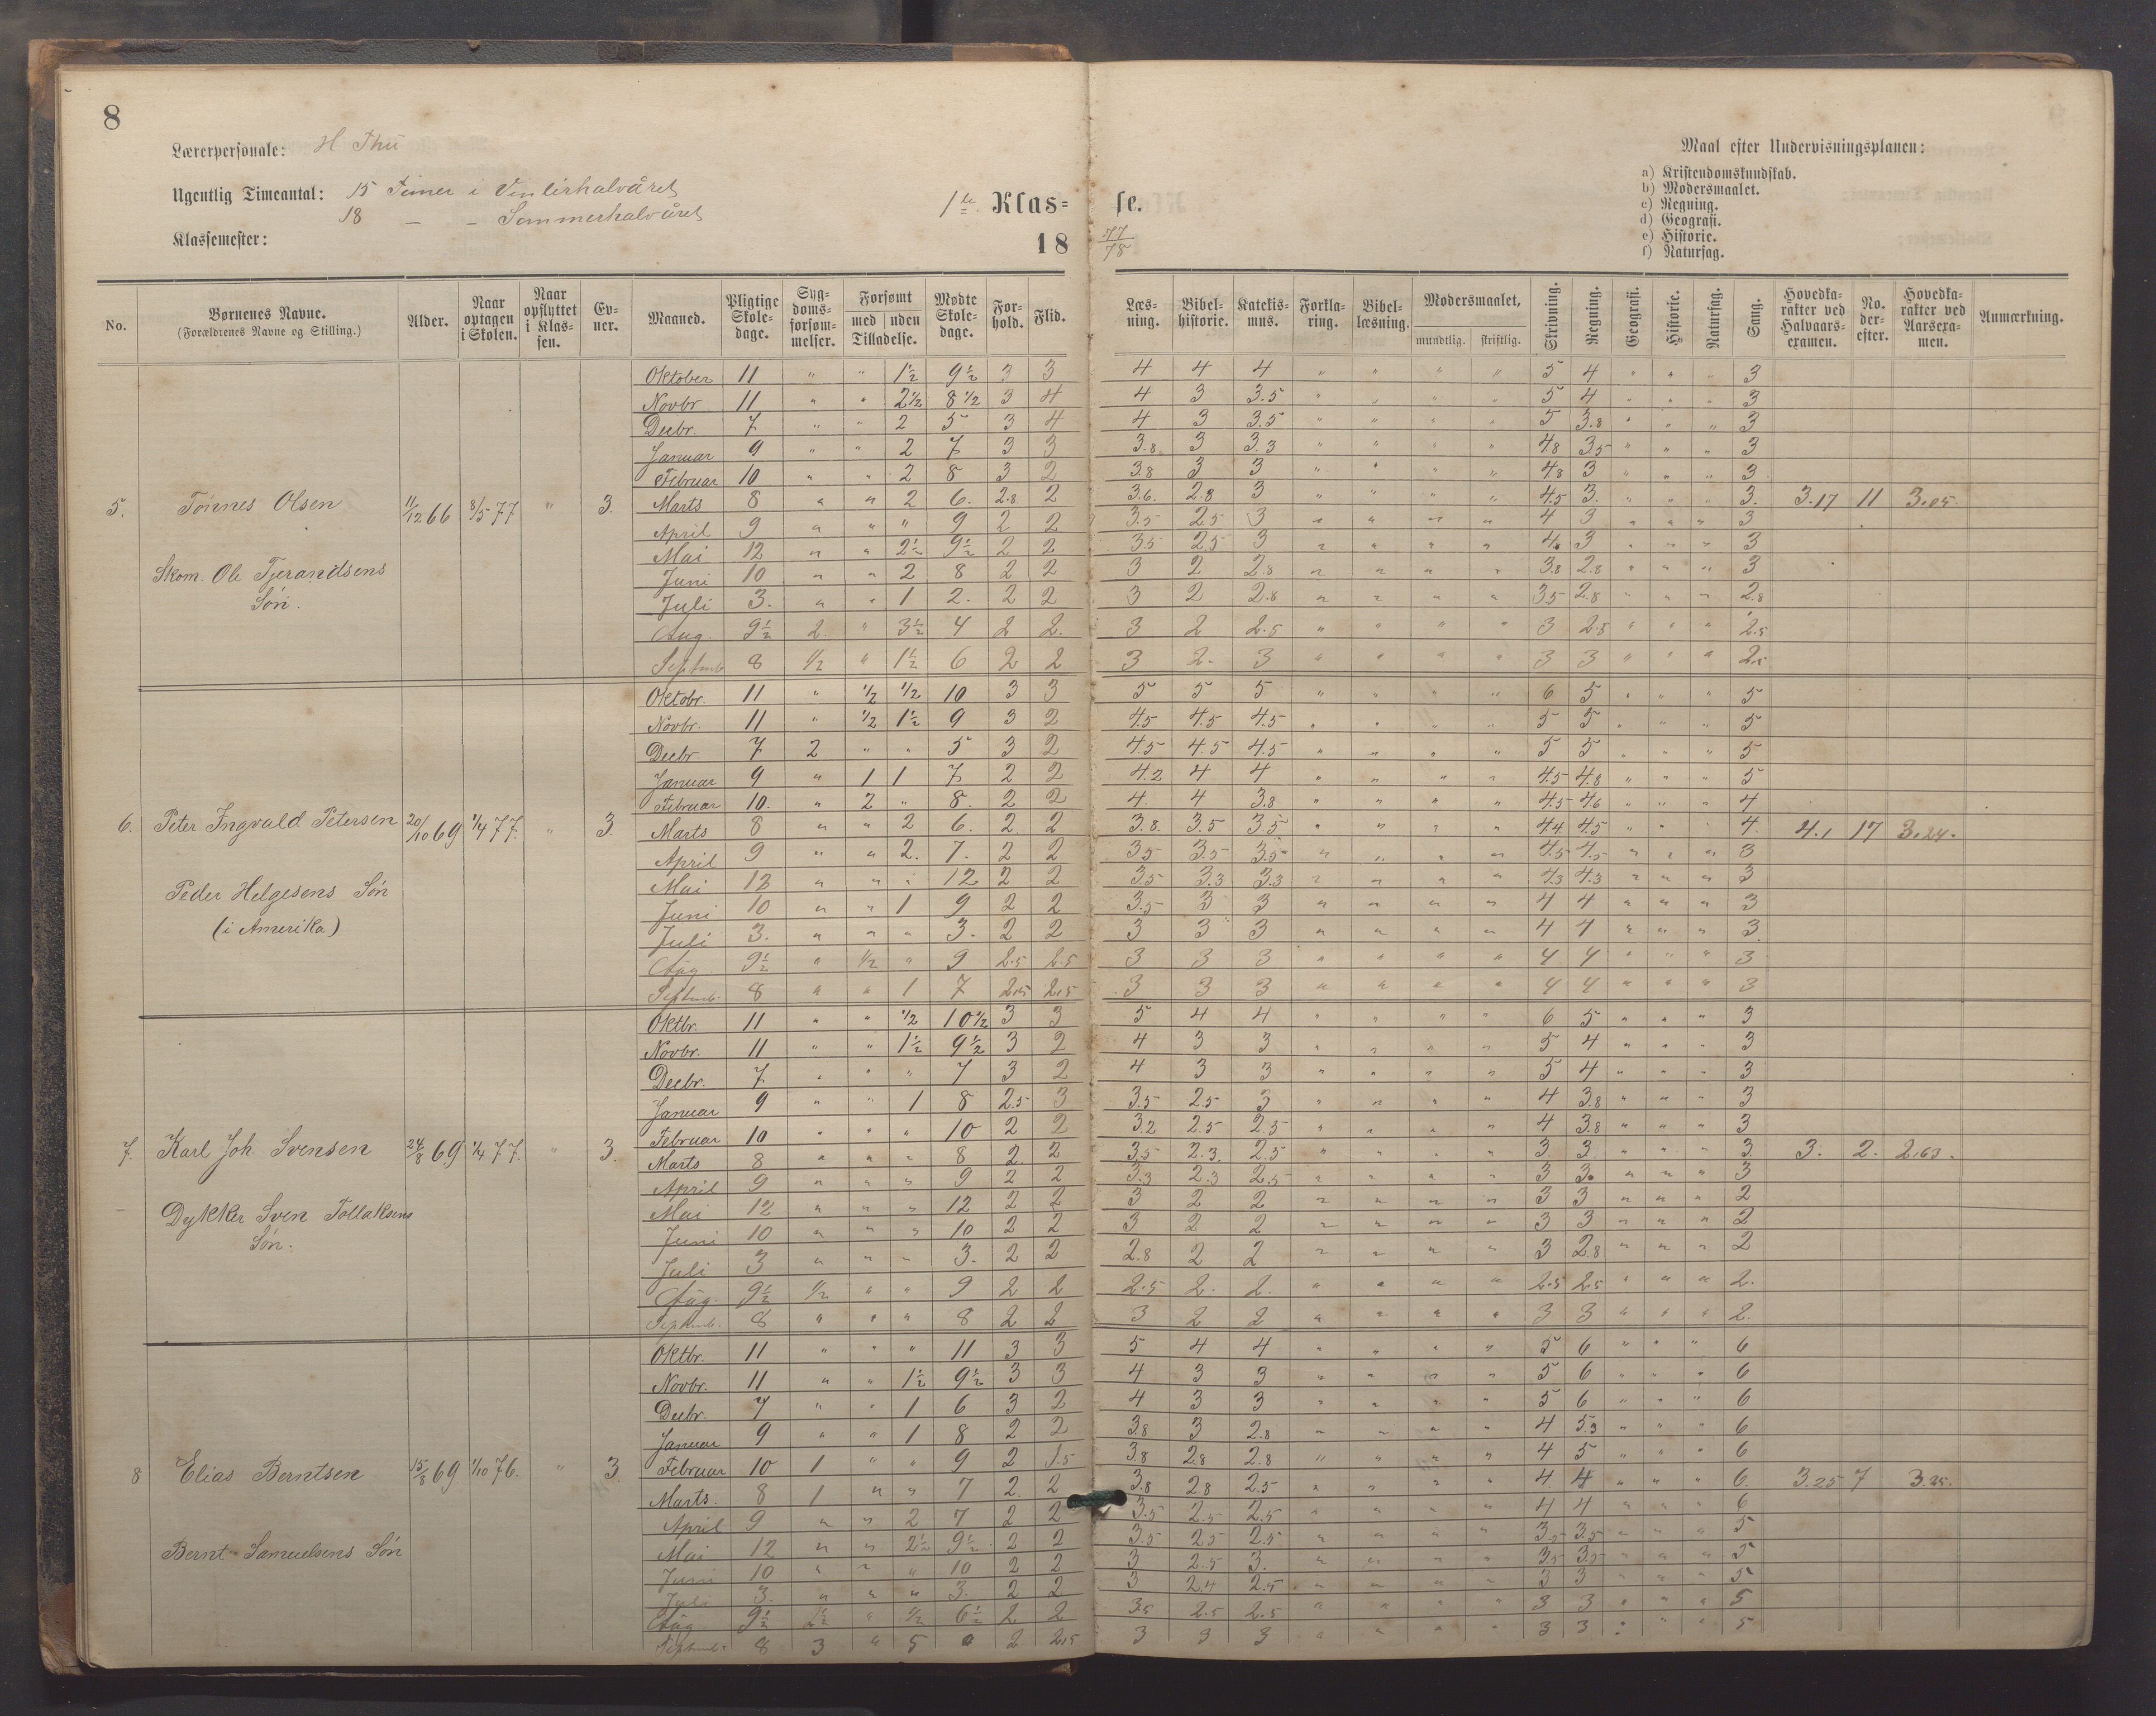 8
Lærerpersonale: H Thu
Maal efter Undervisningsplanen:
Ugentlig Timeantal: 15 Timer i Vinterhalvåret
18 — - Sommerhalvåret
1ste Klasse.
a) Kristendomskundskab.
b) Modersmaalet.
c) Regning.
d) Geografi.
e) Historie.
f) Naturfag.
Klassemester:
18 77/78
No. Børnenes Navne. (Forældrenes Navne og Stilling.) Alder. Naar optagen i Skolen. Naar opflyttet i Klassen. Evner. Maaned. Pligtige Skoledage. Sygdomsforsømmelser. Forsømt med uden Tilladelse. Mødte Skoledage. Forhold. Flid. Læsning. Bibelhistorie. Katekismus. Forklaring. Bibellæsning. Modersmaalet, mundtlig. skriftlig. Skrivning. Regning. Geografi. Historie. Naturfag. Sang. Hovedkarakter ved Halvaarsexamen. No. derefter. Hovedkarakter ved Aarsexamen. Anmærkning.
Oktober 11 " " 1½ 9½ 3 3 4 4 4 " " " " 5 4 " " " 3
Novbr 11 " " 2½ 8½ 3 4 4 3 3.5 " " " " 5 4 " " " 3
Decbr. 7 " " 2 5 3 4 4 3 3.5 " " " " 5 3.8 " " " 3
Januar 9 " " 2 7 3 3 3.8 3 3.3 " " " " 4.8 3.5 " " " 3
Februar 10 " " 2 8 3 2 3.8 3 3 " " " " 4.8 3 " " " 3
5. Tönnes Olsen 11/12 66 8/5 77 " 3. Marts 8 " " 2 6. 2.8. 2 3.6. 2.8 3 " " " " 4.5 3. " " " 3. 3.17 11 3.05.
April 9 " " " 9 2 2 3.5 2.5 3 " " " " 4 3 " " " 3
Mai 12 " " 2½ 9½ 2 2 3.5 2.5 3 " " " " 4. 3 " " " 3
Skom. Ole Tjerandsens Juni 10 " " 2 8 2 2 3 2 2.8 " " " " 3.8 2.8 " " " 3
Sön. Juli 3. " " 1 2. 2 2 3 2 2.8 " " " " 3.5 2.8 " " " 2.8
Aug. 9½ 2. " 3½ 4 2 2. 3 2 2.5 " " " " 3 2.5 " " " 2.5
Septmb 8 ½ " 1½ 6 2 2 3 2. 3 " " " " 3 3 " " " 2.5
Oktobr. 11 " ½ ½ 10 3 3 5 5 5 " " " " 6 5 " " " 5
Novbr. 11 " ½ 1½ 9 3 2 4.5 4.5 4.5 " " " " 5 5 " " " 5
Decbr 7 2 " " 5 3 2 4.5 4.5 4.5 " " " " 5 5 " " " 5
Januar 9 " 1 1 7 2 2 4.2 4 4 " " " " 4.5 4.8 " " " 5
Februar 10. " 2 " 8. 2 2 4. 4 3.8 " " " " 4.5 4.6 " " " 4
6. Peter Ingvald Petersen 20/10 69 1/4 77. " 3. Marts 8 " " 2 6. 2. 2 3.8. 3.5 3.5 " " " " 4.4 4.5 " " " 4. 4.1 17 3.24.
April 9 " " 2. 7. 2 2 3.5 3.5 3.5 " " " " 4.5 4.5 " " " 3
Peder Helgesens Sön Mai 12 " " " 12 2 2 3.5 3.3 3.3 " " " " 4.3 4.3 " " " 3
Juni 10 " " 1 9 2 2 3.5 3 3 " " " " 4 4 " " " 3
(i Amerika) Juli 3. " " " 3. 2 2 3 3 3 " " " " 4 4 " " " 3.
Aug. 9½ " ½ " 9 2.5 2.5 3 3 3 " " " " 4 4 " " " 3
Septmb. 8 " " 1 7 2.5 2.5 3 3 3 " " " " 4 4 " " " 3
Oktbr. 11 " " ½ 10½ 3 3 5 4 4 " " " " 6 5 " " " 3
Novbr. 11 " " 1½ 9½ 3 2 4 3 3 " " " " 5 4 " " " 3
Decbr. 7 " " " 7 3 2 4 3 3 " " " " 5 4 " " " 3
Januar 9 " " 1 8 2.5 3 3.5 2.5 3 " " " " 4 3.8 " " " 3
Februar 10 " " " 10 2 2 3.2 2.5 2.5 " " " " 4 3.8 " " " 3
7. Karl Joh Svensen 24/8 69 1/4 77. " 3. Marts 8 " " " 8 2. 2 3.5 2.3. 2.5 " " " " 3. 3. " " " 3. 3. 2. 2.63.
April 9 " " " 9 2 2 3.3 2.3 2.5 " " " " 3 3. " " " 3
Dykker Sven Tollaksens Mai 12 " " " 12 2 2 3 2 2 " " " " 3 3 " " " 2
Sön. Juni 10 " " " 10 2 2 3 2 2 " " " " 3 3 " " " 2
Juli 3 " " " 3. 2 2 2.8 2 2 " " " " 3 2.8 " " " 2
Aug. 9½ ½ " " 9 2 2 2.5 2. 2. " " " " 2.5 2.5 " " " 2.
Septmb. 8 " " " 8 2 2 3 2 2 " " " " 3 3 " " " 2.
Oktbr. 11 " " " 11 3 3 5 4 4 " " " " 5 6 " " " 6
Novbr. 11 " " 1½ 9½ 3 3 4 3 3 " " " " 5 6 " " " 6
Decbr. 7 " " 1 6 3 2 4 3 3 " " " " 5 6 " " " 6
Januar 9 " " 1 8 2 2 3.8 3 2.8 " " " " 4 5.3 " " " 6
8 Elias Berntsen 15/8 69. 1/10 76. " 3. Februar 10 1 " " 9 2 1.5 3.8 2.8 2.8 " " " " 4 5 " " " 6
Marts. 8 1 " " 7 2. 2 3.8 2.8 2.5 " " " " 4 4 " " " 6. 3.25 7 3.25.
April 9 " " 2 7 2 2 3.5 2.5 2.5 " " " " 4 4 " " " 6
Bernt Samuelsens Sön Mai 12 " " 2½ 9½ 2 2 3.5 2.5 2.5 " " " " 3.5 3.5 " " " 5
Juni 10 " " " 10 2 2 3 2.5 3. " " " " 3.5 3.5 " " " 5
Juli 3. " " " 3. 2 2 3 2.4 2.5 " " " " 3 3 " " " 5
Aug. 9½ 2½ " ½ 6½ 2. 2 3.5 2.5 2.5 " " " " 3 3 " " " 5
Septmb. 8 3 " 5 " 2 2.5 3 3 3 " " " " 3 3 " " " 5